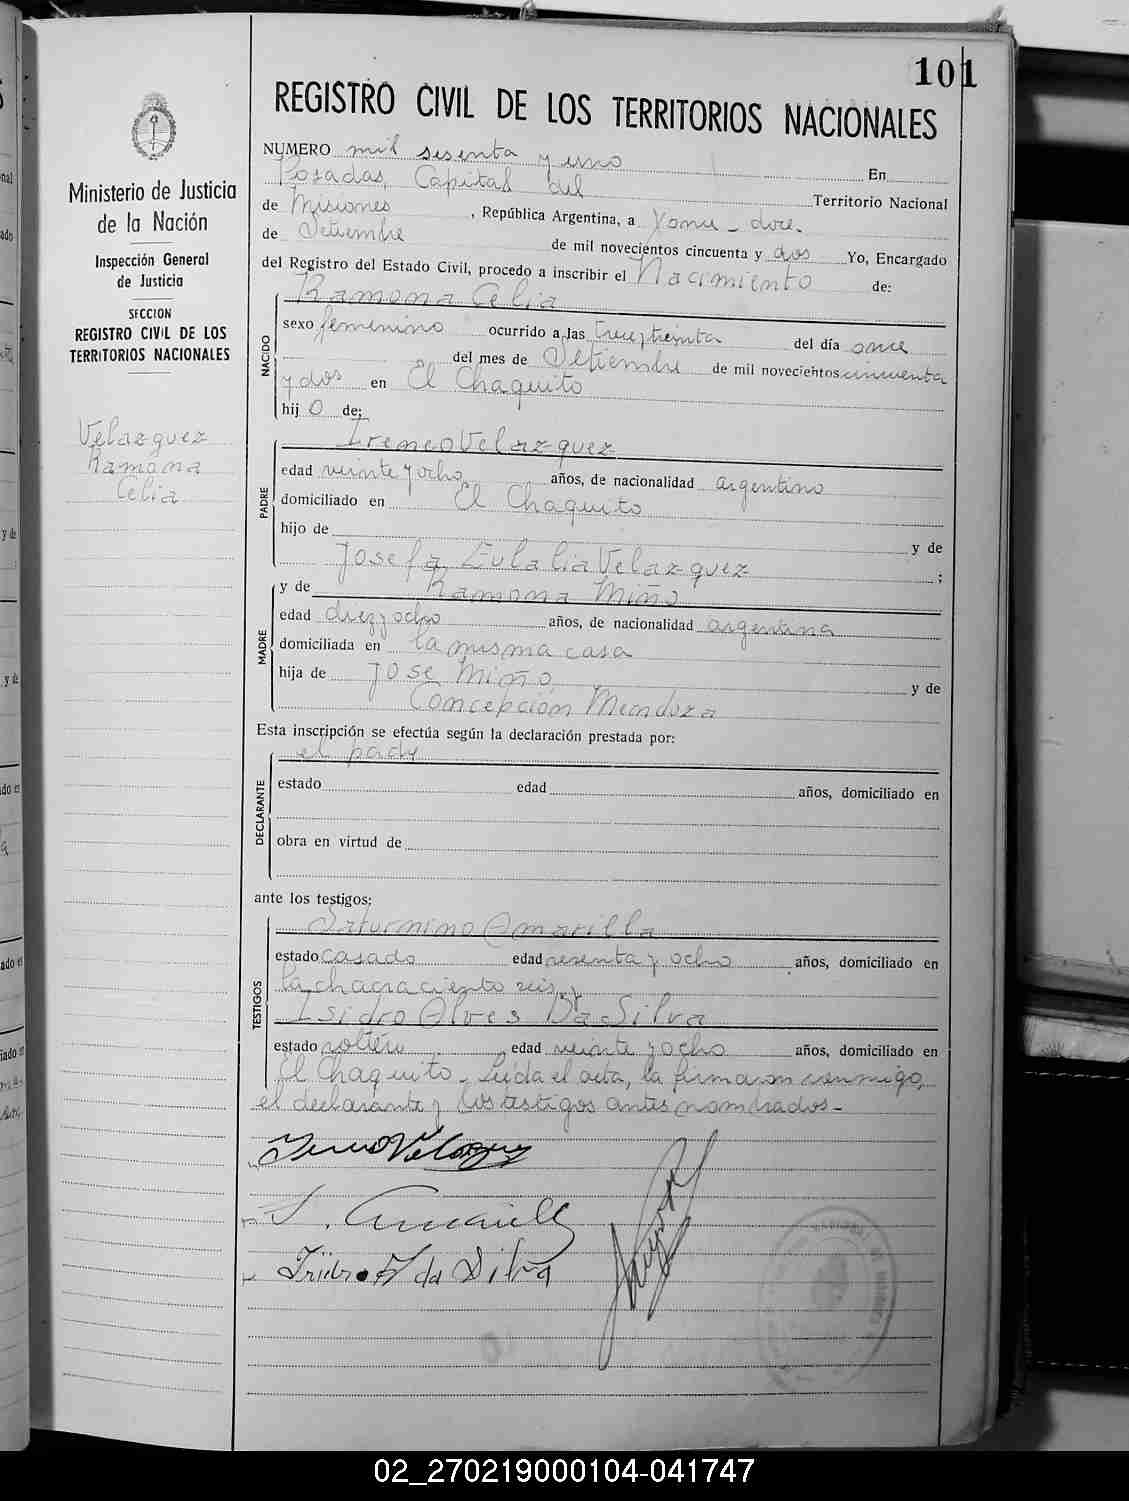 101
REGISTRO CIVIL DE LOS TERRITORIOS NACIONALES
Ministerio de Justicia
de la Nación
Inspección General
de Justicia
SECCION
REGISTRO CIVIL DE LOS
TERRITORIOS NACIONALES
Velazguez
Ramona
Celia
NUMERO mil sesenta y uno En
Posadas, Capital del Territorio Nacional
de Misiones, República Argentina, a doce
de Setiembre de mil novecientos cincuenta y dos Yo, Encargado
del Registro del Estado Civil, procedo a inscribir el Nacimiento de:
NACIDO
Ramona Celia
sexo femenino ocurrido a las treinta del día once
del mes de Setiembre de mil novecientos cincuenta
y dos en El Chaquito
hij a de:
PADRE
Ireneo Velazguez
edad veinte y ocho años, de nacionalidad argentino
domiciliado en El Chaquito
hijo de y de
Josefa Eulalia Velazguez ;
MADRE
y de Ramona Miño
edad diez y ocho años, de nacionalidad argentina
domiciliada en la misma casa
hija de José Miño y de
Concepción Mendoza
Esta inscripción se efectúa según la declaración prestada por:
DECLARANTE
el padre
estado edad años, domiciliado en
obra en virtud de
ante los testigos:
TESTIGOS
Saturnino Amarilla
estado casado edad sesenta y ocho años, domiciliado en
la chacra ciento seis, y
Isidro Alves Da Silva
estado soltero edad veinte y ocho años, domiciliado en
El Chaquito. Leída el acta, la firmaron conmigo,
el declarante y los testigos antes nombrados.-
Ireneo Velazguez
S. Amarilla
Isidro A da Silva
02_270219000104-041747